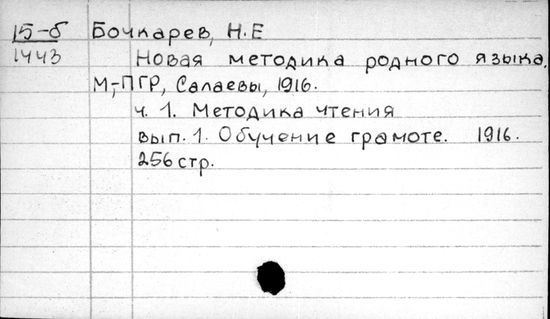 15-б Бочкарев, Н.Е
1443 Новая методика родного языка.
М,-ПГР, Салаевы, 1916.
ч. 1. Методика чтения
вып. 1. Обучение грамоте. 1916.
256 стр.